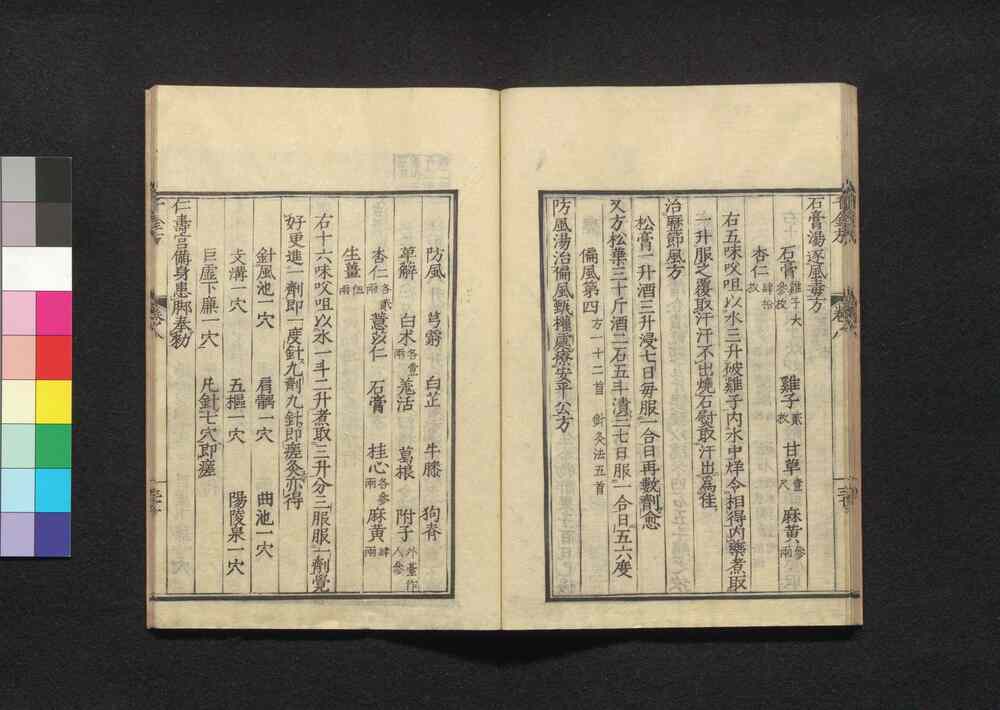 石膏湯逐風毒方
石膏雞子大參枚 雞子貳枚 甘草壹尺 麻黃參兩
杏仁肆拾枚
右五味㕮咀以水三升破雞子內水中烊令相得內藥煮取
一升服之覆取汗汗不出燒石熨取汗出爲佳
治歷節風方
松膏一升酒三升浸七日每服一合日再數劑愈
又方松葉三十斤酒二石五斗漬三七日服一合日五六度
偏風第四方一十二首 針灸法五首
防風湯治偏風甄權處療安平公方
防風 芎藭 白芷 牛膝 狗脊
萆薢 白朮各壹兩 羌活 葛根 附子外臺作人參
杏仁各貳兩 薏苡仁 石膏 桂心各參兩 麻黃肆兩
生薑伍兩
右十六味㕮咀以水一斗二升煮取三升分三服服一劑覺
好更進一劑即一度針九劑九針即瘥灸亦得
針風池一穴 肩髃一穴 曲池一穴
支溝一穴 五樞一穴 陽陵泉一穴
巨虛下廉一穴 凡針七穴即瘥
仁壽宮備身患脚奉勑